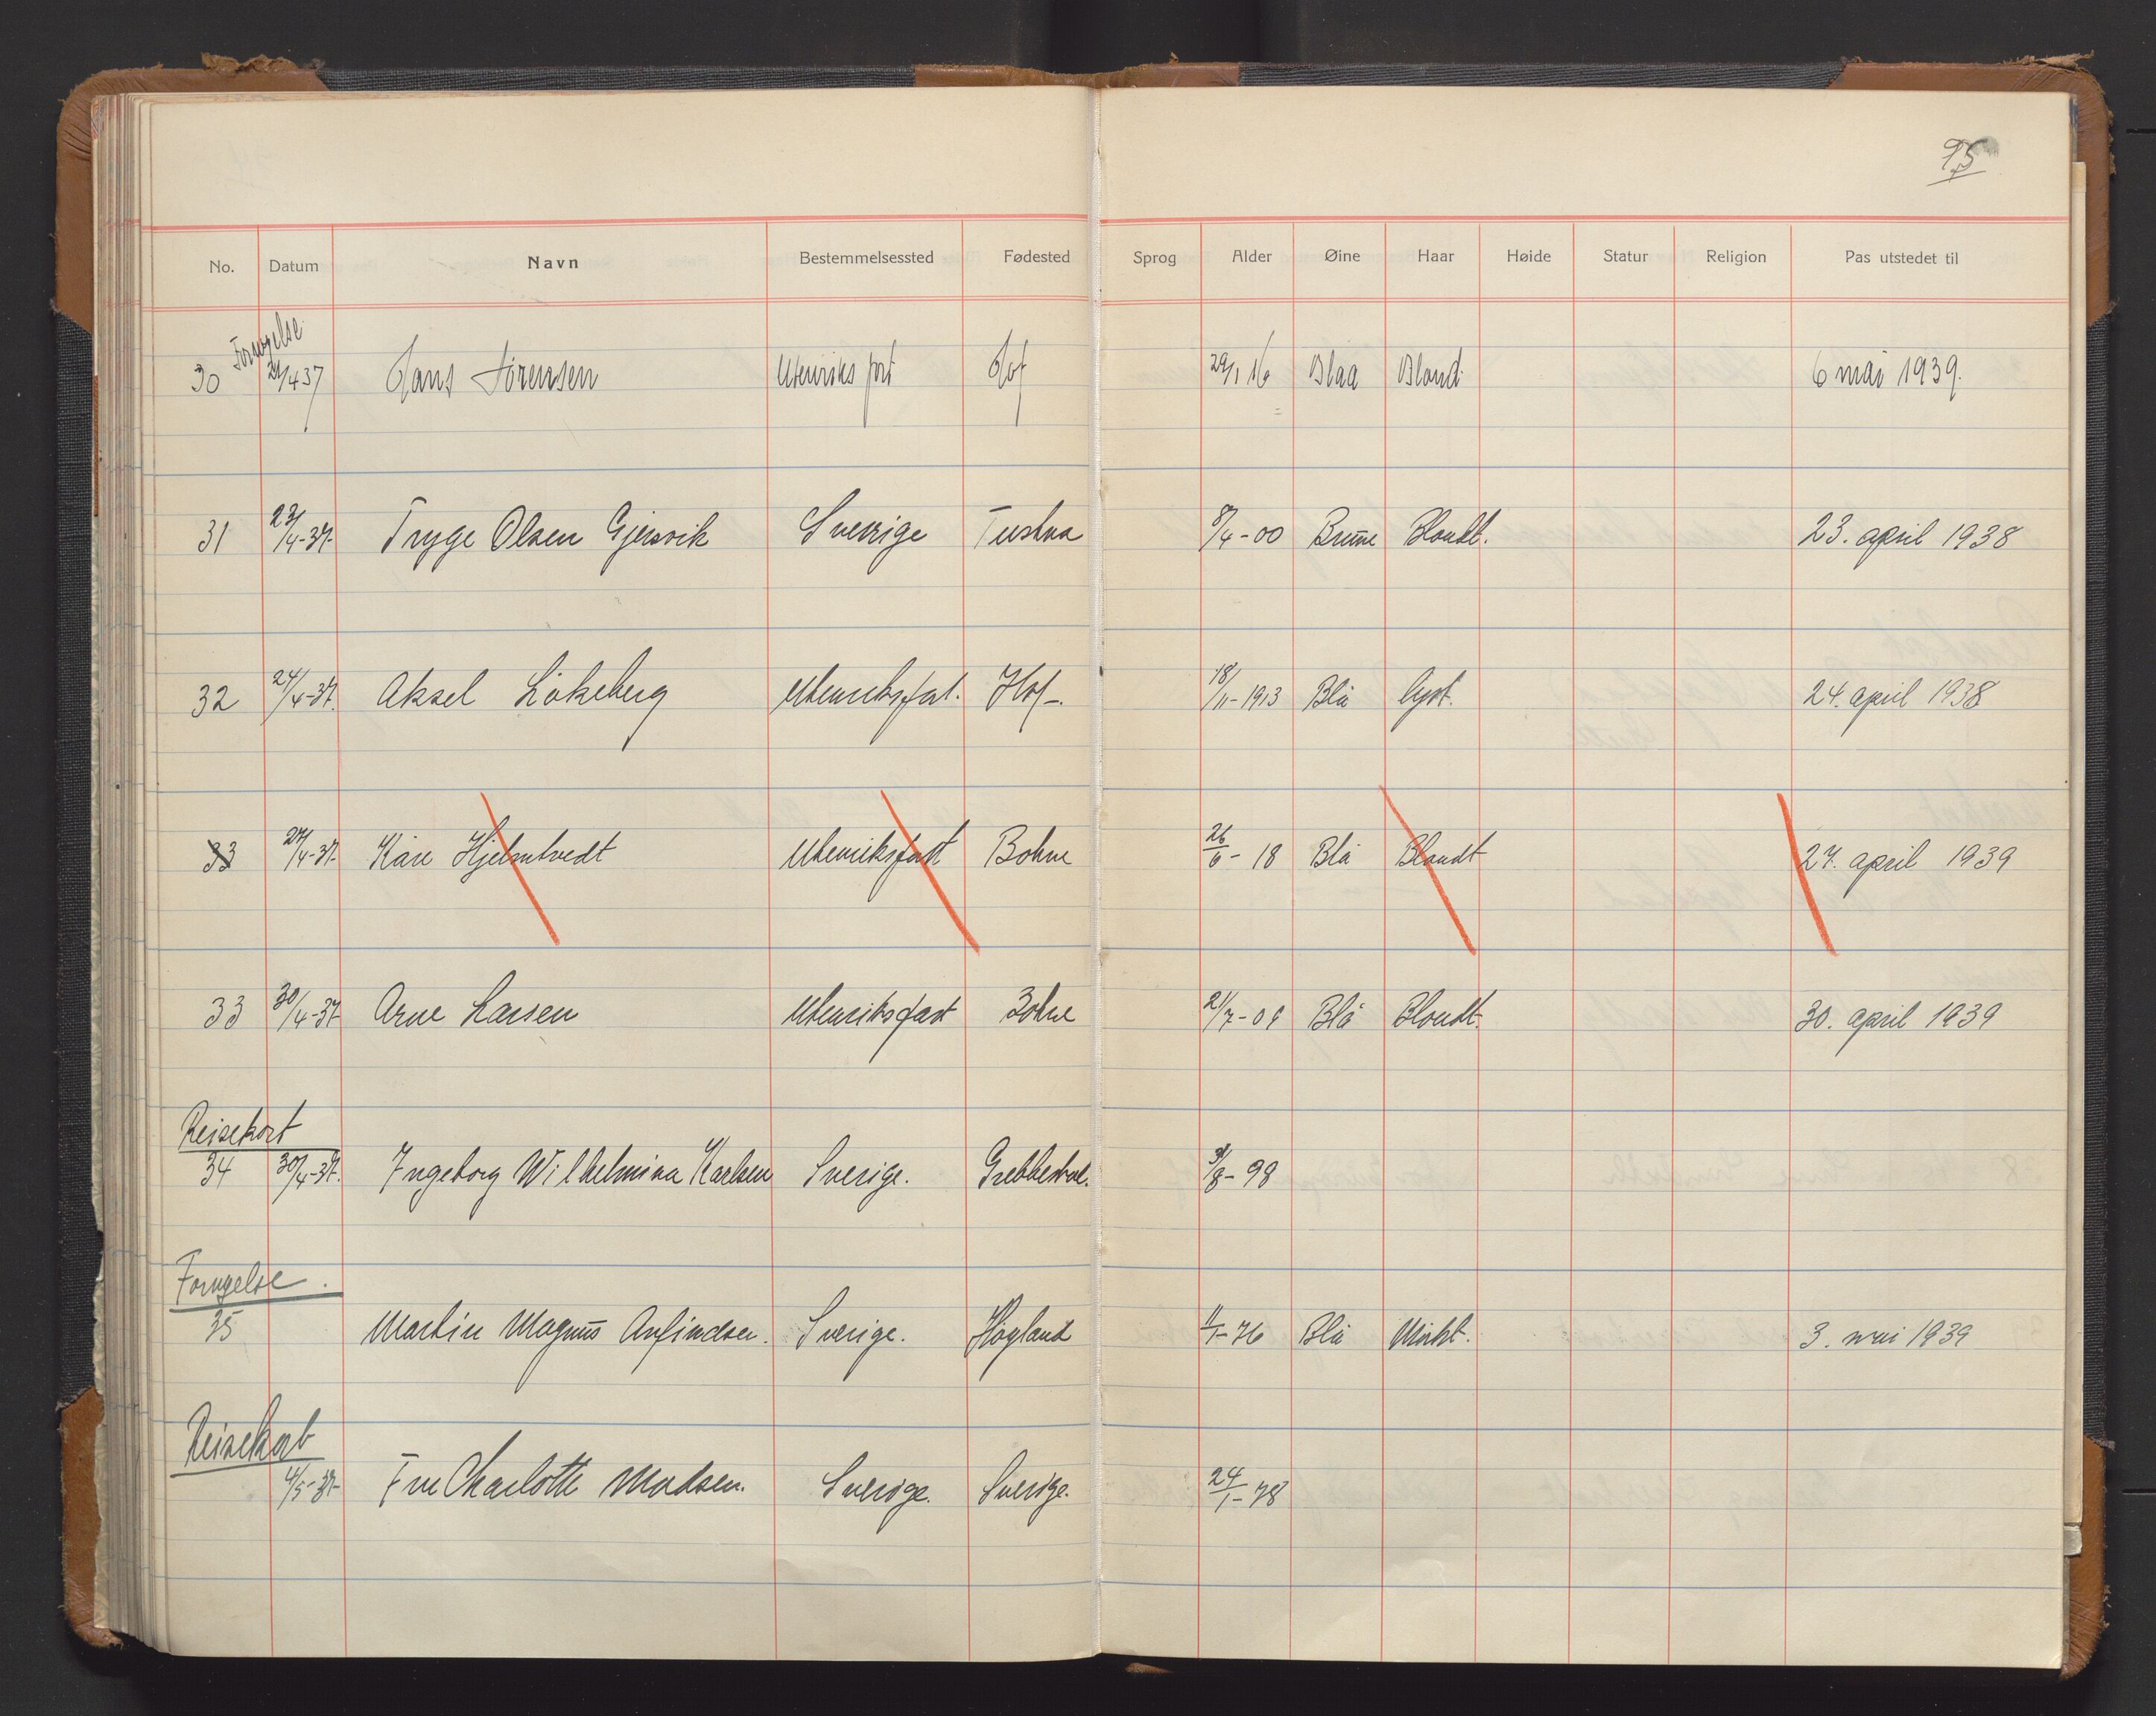 95
No. Datum Navn Bestemmelsessted Fødested Sprog Alder Øine Haar Høide Statur Religion Pas utstedet til
Fornyelse
30 21/4 37 Hans Sørensen Utenriks fart Hof 29/1 16 Blaa Blond. 6 mai 1939.
31 23/4-37. Tryge Olsen Gjersvik Sverige Tustna 8/4-00 Brune Blondt. 23. april 1938
32 24/4-37. Aksel Lökeberg Utenriksfart. Hof-. 18/11-1913 Blå lyst. 24. april 1938
33 27/4-37- Kåre Hjelmtvedt Utenriksfart Botne 26/6-18 Blå Blondt 27. april 1939
33 30/4-37 Arne Larsen Utenriksfart Botne 21/7-09 Blå Blondt. 30. april 1939
Reisekort
34 30/4-37. Ingeborg Wilhelmina Karlsen Sverige. 3/8-98
Fornyelse.
35 Martin Magnus Anfindsen. Sverige. Høyland 11/1-76 Blå Mörkt. 3. mai 1939
Reisekort
4/5-37- Fru Charlotte Madsen. Sverige. Sverige. 24/1-78